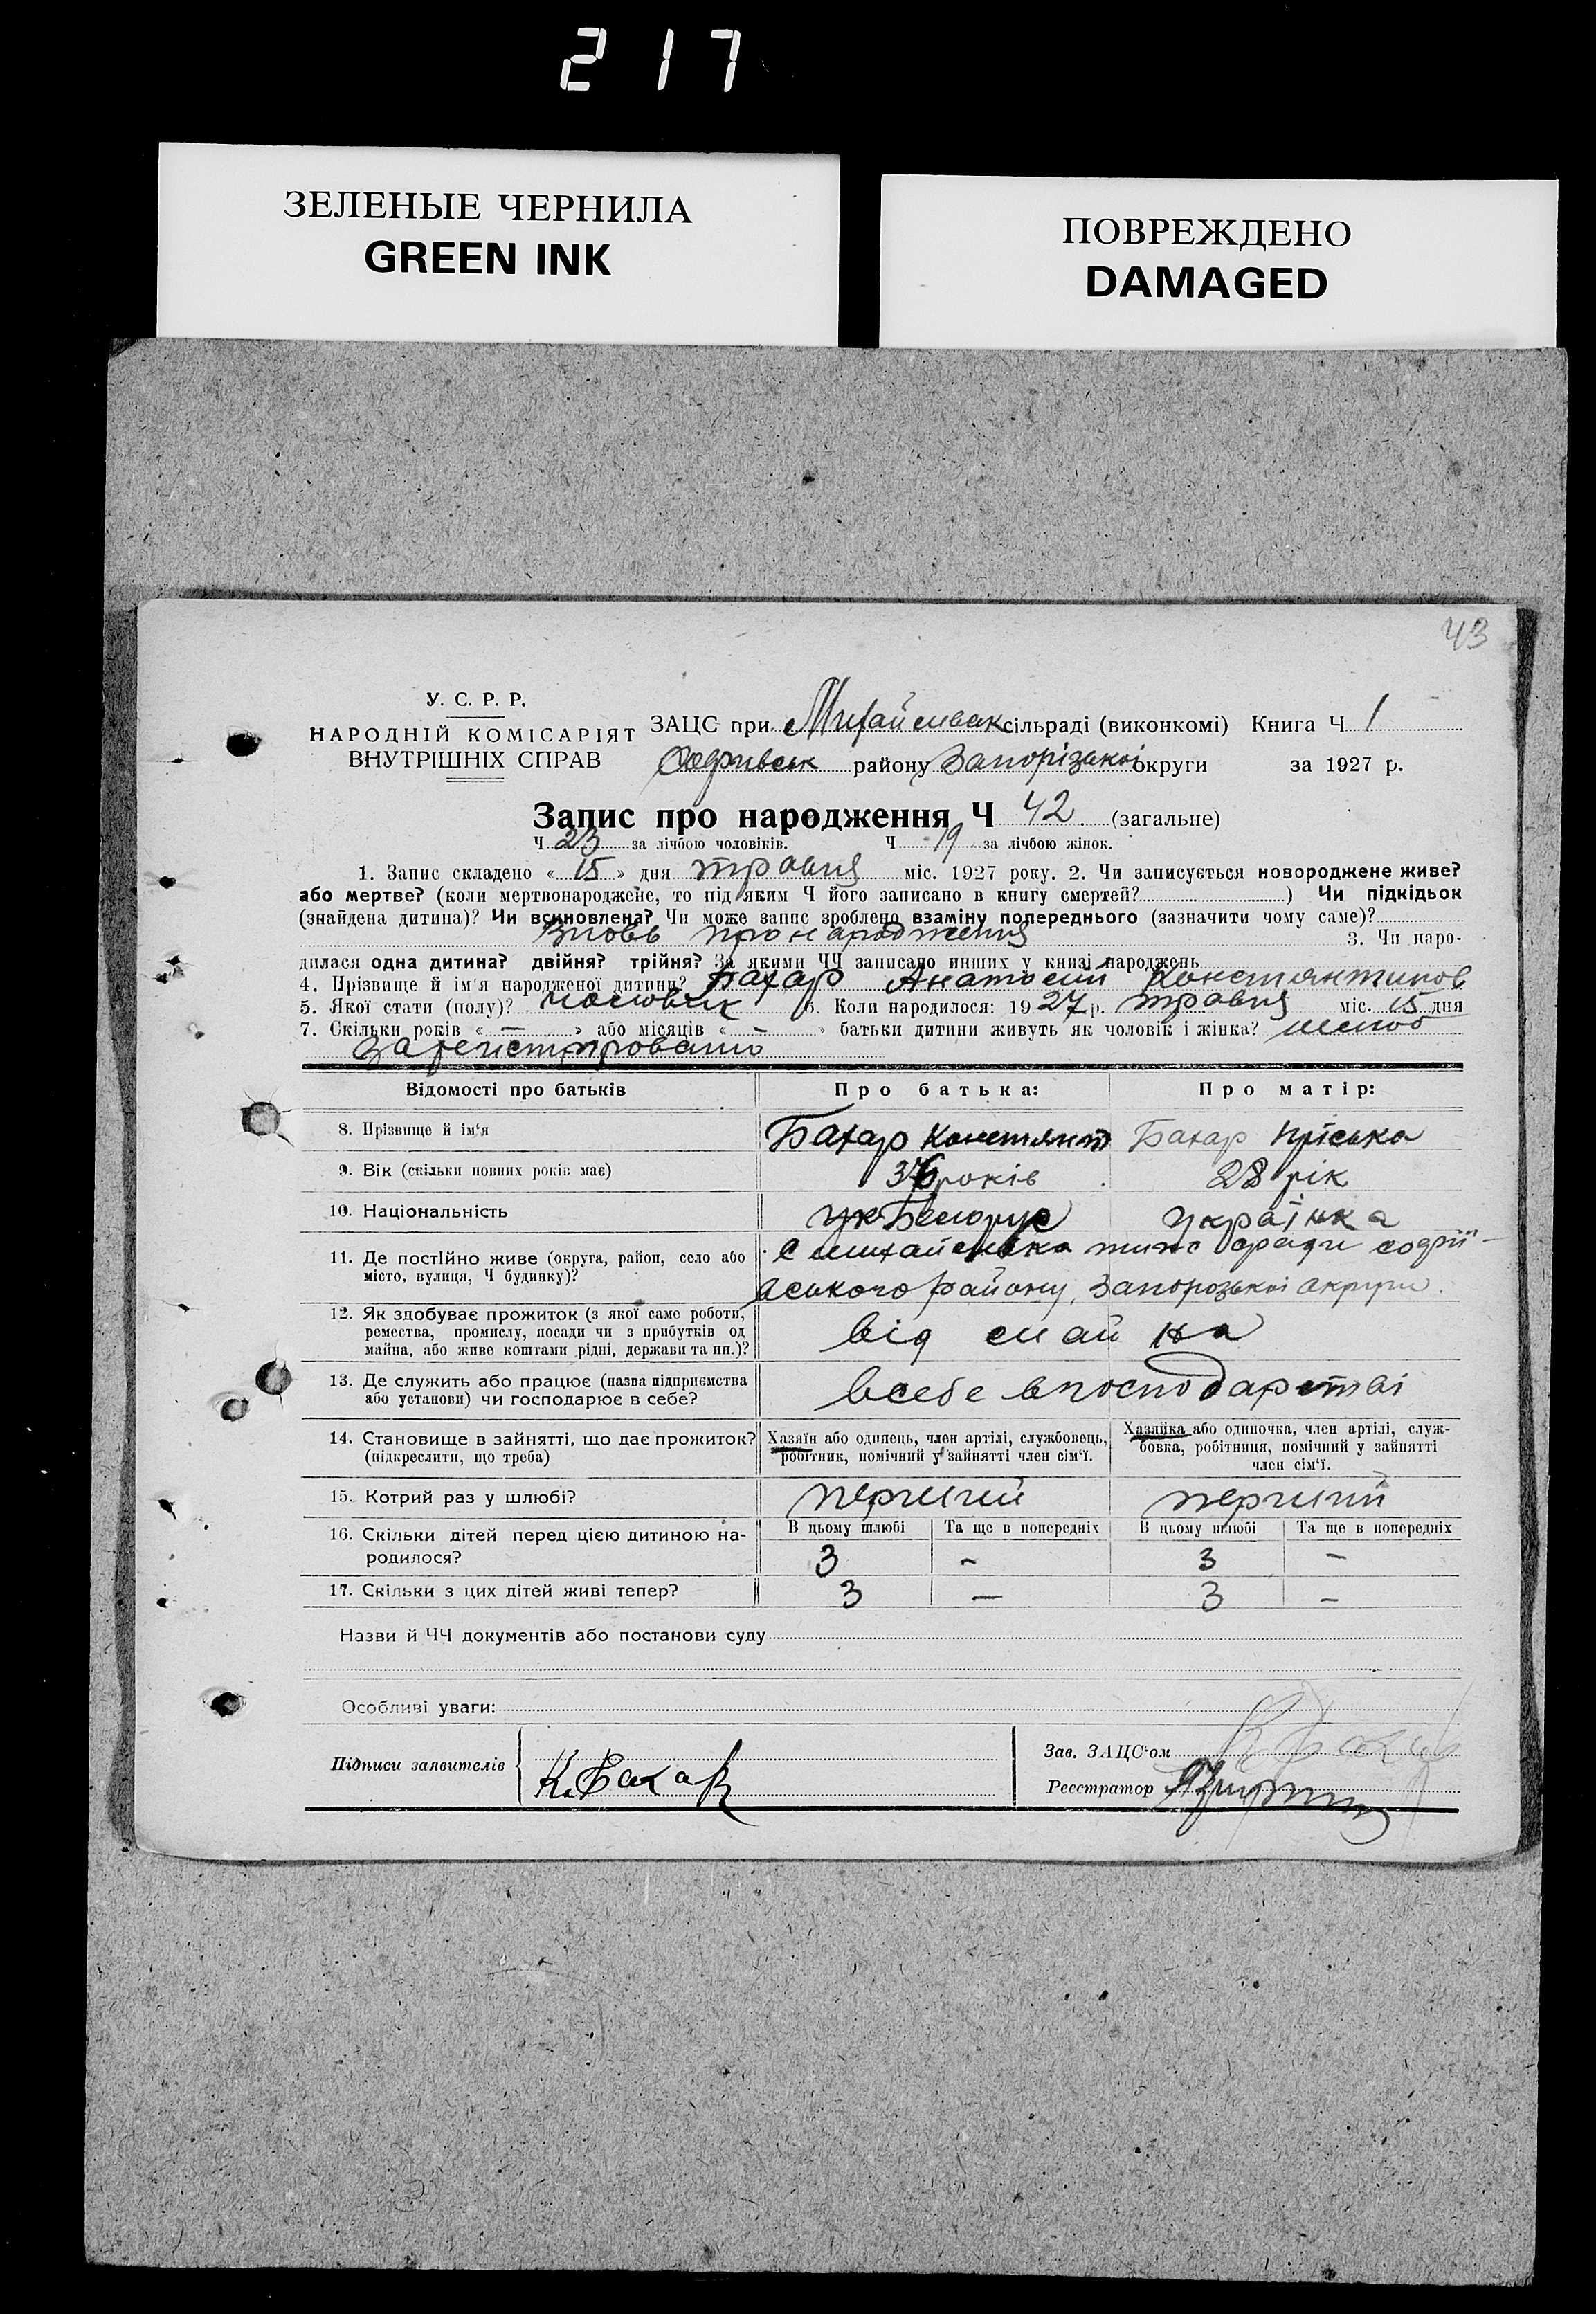 217
ЗЕЛЕНЫЕ ЧЕРНИЛА
GREEN INK
ПОВРЕЖДЕНО
DAMAGED
43
У. С. Р. Р.
НАРОДНІЙ КОМІСАРІЯТ
ВНУТРІШНІХ СПРАВ
ЗАЦС при Михайлівськ сільраді (виконкомі) Книга Ч 1
району Запорізької округи за 1927 р.
Запис про народження Ч 42 (загальне)
Ч 23 за лічбою чоловіків. Ч 19 за лічбою жінок.
1. Запис складено « 15 » дня травня міс. 1927 року. 2. Чи записується новороджене живе?
або мертве? (коли мертвонароджене, то під яким Ч його записано в книгу смертей? ) Чи підкідьок
(знайдена дитина)? Чи всиновлена? Чи може запис зроблено взаміну попереднього (зазначити чому саме)?
вновь про народження 3. Чи наро-
дилася одна дитина? двійня? трійня? За якими ЧЧ записано инших у книзі народжень
4. Прізвище й ім'я народженої дитини? Бахар Анатолій Константинов
5. Якої стати (полу)? чоловік 6. Коли народилося: 1927 р. травня міс. 15 дня
7. Скільки років « — » або місяців « — » батьки дитини живуть як чоловік і жінка? шлюб
зарегистрировано
Відомості про батьків
Про батька:
Про матір:
8. Прізвище й ім'я Бахар Констянт Бахар Пріська
9. Вік (скільки повних років має) 36 років 28 рік
10. Національність Белорус Українка
11. Де постійно живе (округа, район, село або
місто, вулиця, Ч будинку)?
с Михайлівка
району, Запорозької округи.
12. Як здобуває прожиток (з якої саме роботи,
ремества, промислу, посади чи з прибутків од
майна, або живе коштами рідні, держави та ин.)?
від майна
13. Де служить або працює (назва підприємства
або установи) чи господарює в себе?
всебе в господарстві
14. Становище в зайнятті, що дає прожиток?
(підкреслити, що треба)
Хазяїн або одинець, член артілі, службовець,
робітник, помічний у зайнятті член сім'ї.
Хазяйка або одиночка, член артілі, служ-
бовка, робітниця, помічний у зайнятті
член сім'ї.
15. Котрий раз у шлюбі? перший перший
16. Скільки дітей перед цією дитиною на-
родилося?
В цьому шлюбі Та ще в попередніх В цьому шлюбі Та ще в попередніх
3 - 3 -
17. Скільки з цих дітей живі тепер? 3 — 3 -
Назви й ЧЧ документів або постанови суду
Особливі уваги:
Підписи заявителів К. Бахар
Зав. ЗАЦС'ом
Реєстратор